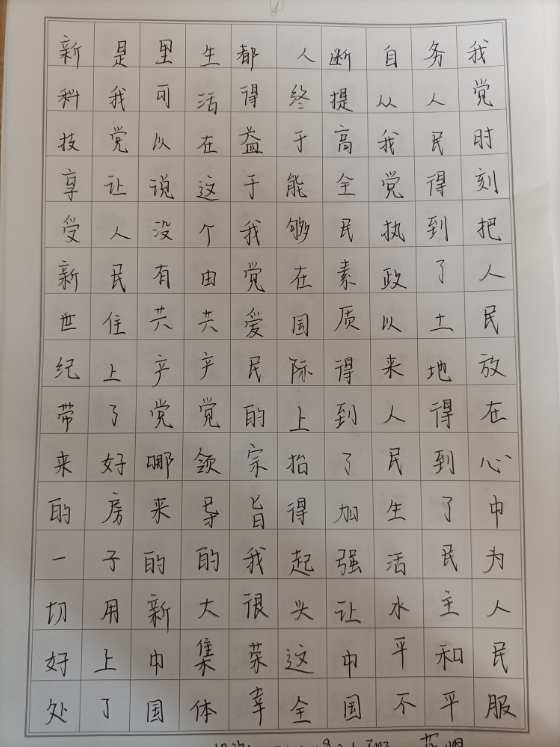 我党时刻把人民放在心中为人民服
务人民得到了土地得到了民主和平
自从我党执政以来人民生活水平不
断提高全民素质得到了加强让中国
人终于能够在国际上抬得起头这全
都得益于我党爱民的宗旨我很荣幸
生活在这个由共产党领导的大集体
里可以说没有共产党哪来的新中国
是我党让人民住上了好房子用上了
新科技享受新世纪带来的一切好处